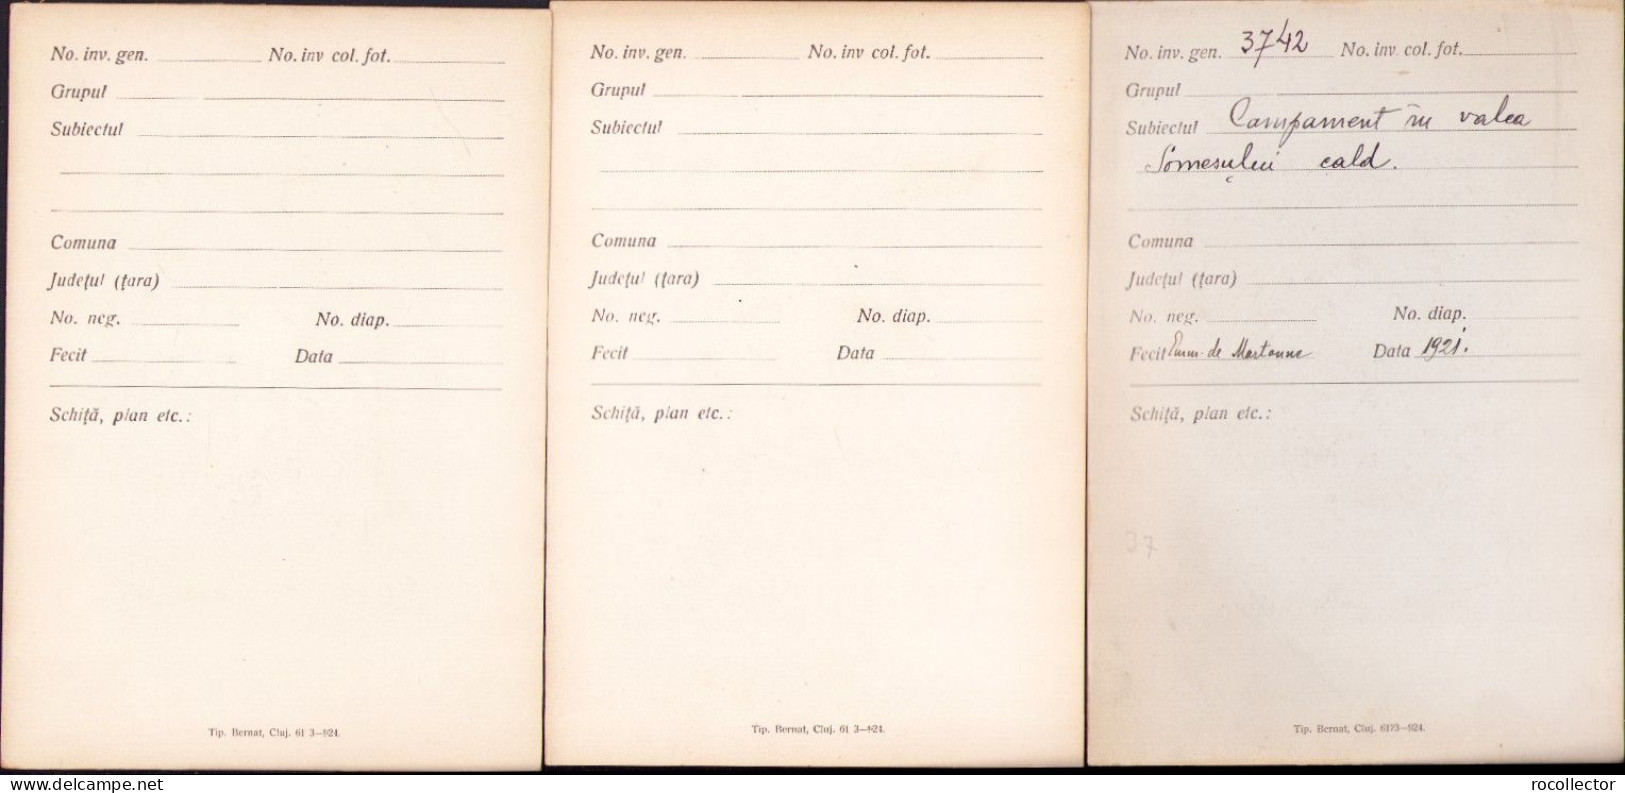 No. inv. gen. No. inv col. fot.
Grupul
Subiectul
Comuna
Județul (țara)
No. neg. No. diap.
Fecit Data
Schiță, plan etc.:
Tip. Bernat, Cluj. 61 3—924.
No. inv. gen. No. inv col. fot.
Grupul
Subiectul
Comuna
Județul (țara)
No. neg. No. diap.
Fecit Data
Schiță, plan etc.:
Tip. Bernat, Cluj. 61 3—924.
No. inv. gen. 3742 No. inv. col. fot.
Grupul
Subiectul Campament în valea
Someșului cald.
Comuna
Județul (țara)
No. neg. No. diap.
Fecit Emm. de Martonne Data 1921.
Schiță, plan etc.:
37
Tip. Bernat, Cluj. 6173—924.
rocollector